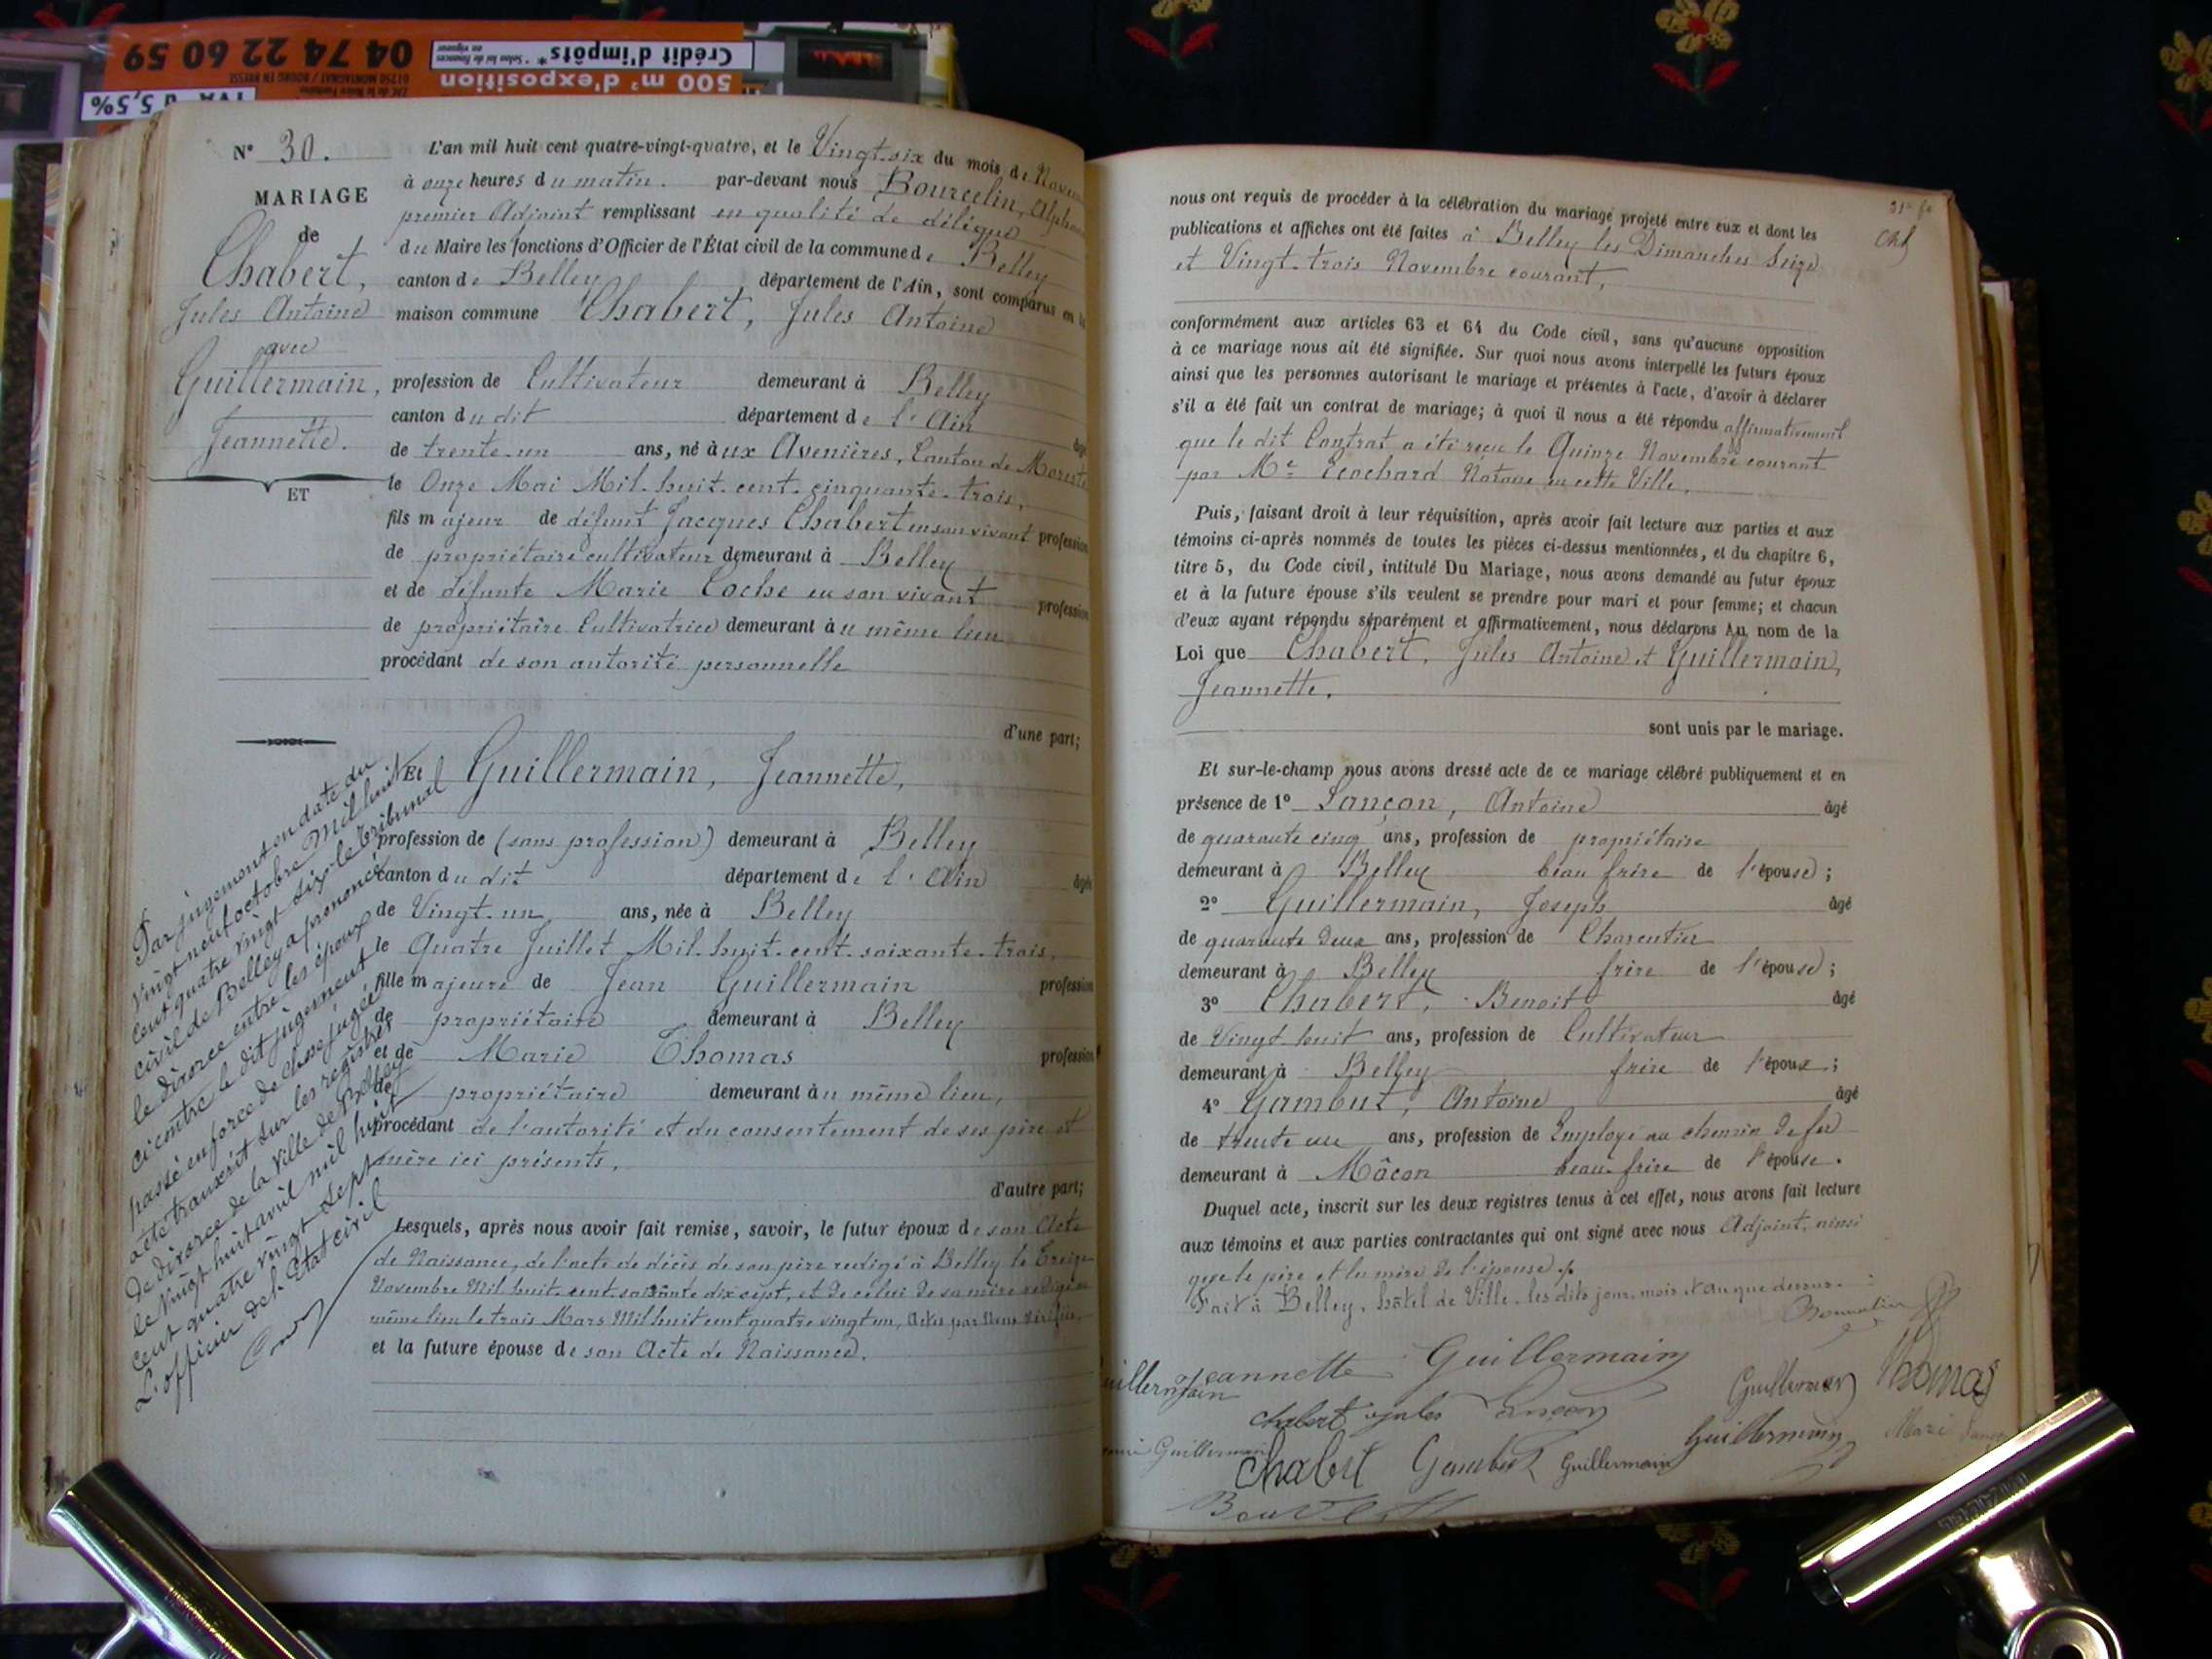 04 74 22 60 59
ZAC de la Noire Fontaine
01250 MONTAGNAT / BOURG EN BRESSE
TVA à 5,5%
Crédit d'impôts* * Selon loi de finances en vigueur
500 m² d'exposition
N° 30.
MARIAGE
de
Chabert,
Jules Antoine
avec
Guillermain,
Jeannette.
ET
L'an mil huit cent quatre-vingt-quatre, et le Vingt-six du mois de
à onze heures du matin. par-devant nous Bourcelin,
premier Adjoint remplissant en qualité de délégué
du Maire les fonctions d'Officier de l'État civil de la commune de Belley
canton de Belley, département de l'Ain, sont comparus en
maison commune Chabert, Jules Antoine
profession de Cultivateur demeurant à Belley
canton du dit département de l'Ain
de trente-un ans, né aux Avenières, Canton de
le Onze Mai Mil-huit-cent-cinquante-trois,
fils majeur de défunt Jacques Chabert en son vivant profession
de propriétaire cultivateur demeurant à Belley
et de défunte Marie Coche en son vivant profession
de propriétaire Cultivatrice demeurant au même lieu
procédant de son autorité personnelle
d'une part;
Et Guillermain, Jeannette,
profession de (sans profession) demeurant à Belley
canton du dit département de l'Ain âgée
de Vingt-un ans, née à Belley
le Quatre Juillet Mil-huit-cent-soixante-trois,
fille majeure de Jean Guillermain profession
de propriétaire demeurant à Belley
et de Marie Thomas profession
de propriétaire demeurant au même lieu,
procédant de l'autorité et du consentement de ses père et
mère ici présents,
d'autre part;
Lesquels, après nous avoir fait remise, savoir, le futur époux de son Acte
de Naissance, de l'acte de décès de son père redigé à Belley le Treize
Novembre Mil huit cent soixante dix sept, et de celui de sa mère redigé au
même lieu le trois Mars Mil huit cent quatre vingt un, Actes par Nous
et la future épouse de son Acte de Naissance.
Par jugement en date du
vingt neuf octobre Mil huit
cent quatre vingt six le tribunal
civil de Belley a prononcé
le divorce entre les époux
ci contre le dit jugement
passé en force de chose jugée
acte transcrit sur les registres
de divorce de la ville de Belley
le vingt huit avril mil huit
cent quatre vingt sept
L'officier de l'Etat civil
nous ont requis de procéder à la célébration du mariage projeté entre eux et dont les
publications et affiches ont été faites à Belley les Dimanches Seize
et Vingt-trois Novembre courant,
conformément aux articles 63 et 64 du Code civil, sans qu'aucune opposition
à ce mariage nous ait été signifiée. Sur quoi nous avons interpellé les futurs époux
ainsi que les personnes autorisant le mariage et présentes à l'acte, d'avoir à déclarer
s'il a été fait un contrat de mariage; à quoi il nous a été répondu affirmativement
que le dit Contrat a été reçu le Quinze Novembre courant
par Me Ecochard Notaire en cette Ville.
Puis, faisant droit à leur réquisition, après avoir fait lecture aux parties et aux
témoins ci-après nommés de toutes les pièces ci-dessus mentionnées, et du chapitre 6,
titre 5, du Code civil, intitulé Du Mariage, nous avons demandé au futur époux
et à la future épouse s'ils veulent se prendre pour mari et pour femme; et chacun
d'eux ayant répondu séparément et affirmativement, nous déclarons Au nom de la
Loi que Chabert, Jules Antoine et Guillermain,
Jeannette.
sont unis par le mariage.
Et sur-le-champ nous avons dressé acte de ce mariage célébré publiquement et en
présence de 1° Lançon, Antoine âgé
de quarante cinq ans, profession de propriétaire
demeurant à Belley beau frère de l'épouse;
2° Guillermain, Joseph âgé
de quarante deux ans, profession de Charentier
demeurant à Belley frère de l'épouse;
3° Chabert, Benoit âgé
de Vingt huit ans, profession de Cultivateur
demeurant à Belley frère de l'époux;
4° Gambut, Antoine âgé
de trente un ans, profession de Employé au chemin de fer
demeurant à Mâcon beau-frère de l'épouse.
Duquel acte, inscrit sur les deux registres tenus à cet effet, nous avons fait lecture
aux témoins et aux parties contractantes qui ont signé avec nous Adjoint, ainsi
que le père et la mère de l'épouse
Fait à Belley, hôtel de Ville, les dits jour, mois et an que dessus.
Jeannette Guillermain Guillermain Thomas
Guillermain
Chabert Jules Lançon
Guillermain Chabert Gambut Guillermain Guillermain Marie